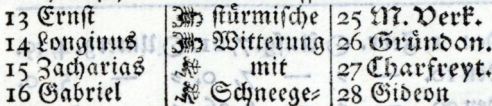 13 Ernſt stürmiſche 25 M. Verk.
14 Longinus Witterung 26 Gründon.
15 Zacharias mit 27 Charfreyt.
16 Gabriel Schneege- 28 Gideon